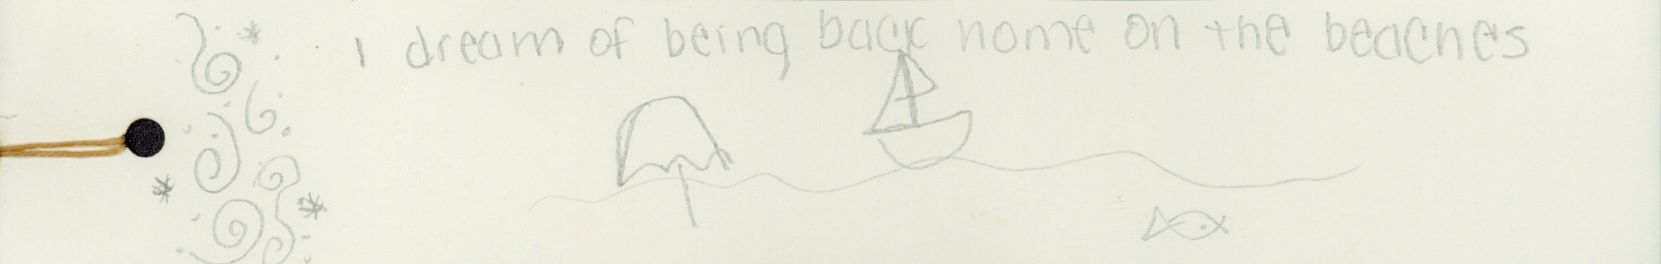 I dream of being back home on the beaches